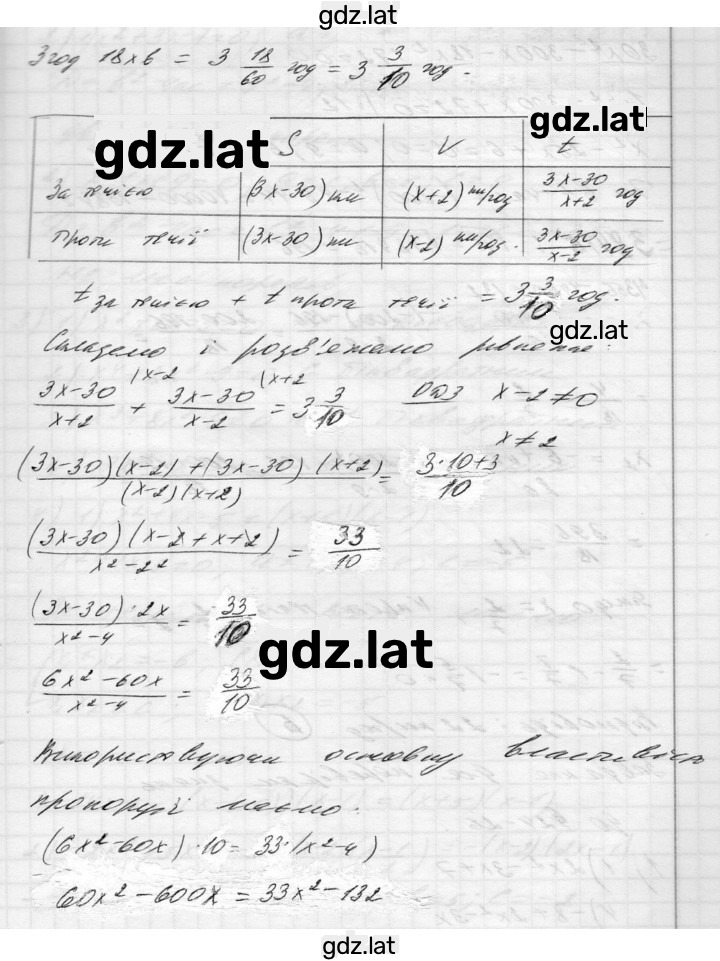 gdz.lat
3 год 18 хв = 3 18/60 год = 3 3/10 год.
gdz.lat
gdz.lat
S V t
За течією (3x-30) км (x+2) км/год (3x-30)/(x+2) год
Проти течії (3x-30) км (x-2) км/год. (3x-30)/(x-2) год
t за течією + t проти течії = 3 3/10 год.
gdz.lat
Складемо і розв'яжемо рівняння:
(3x-30)/(x+2) |x-2 + (3x-30)/(x-2) |x+2 = 3 3/10 ОДЗ x-2≠0
x≠2
((3x-30)(x-2)+(3x-30)(x+2))/((x-2)(x+2)) = (3·10+3)/10
((3x-30)(x-2+x+2))/(x²-2²) = 33/10
((3x-30)·2x)/(x²-4) = 33/10
gdz.lat
(6x²-60x)/(x²-4) = 33/10
Використовуючи основну властивість
пропорції маємо:
(6x²-60x)·10=33·(x²-4)
60x²-600x=33x²-132
gdz.lat